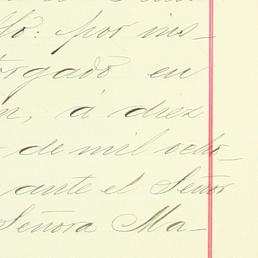 llo: por ins-
orgado en
n, á diez
de mil ocho-
ante el Señor
Señora Ma-